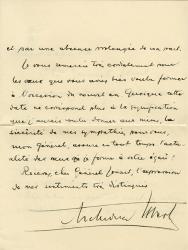 et par une absence prolongée de ma part.
Je vous remercie très cordialement pour
les vœux que vous avez bien voulu former
à l'occasion du nouvel an. Quoique cette
date ne corresponde plus à la signification
que j'aurais voulu donner aux miens, la
sincérité de ma sympathie pour vous,
mon Général, assure en tout temps l'actu-
alité des vœux que je forme à votre égard.
Recevez, cher Général, l'expression
de mes sentiments très distingués